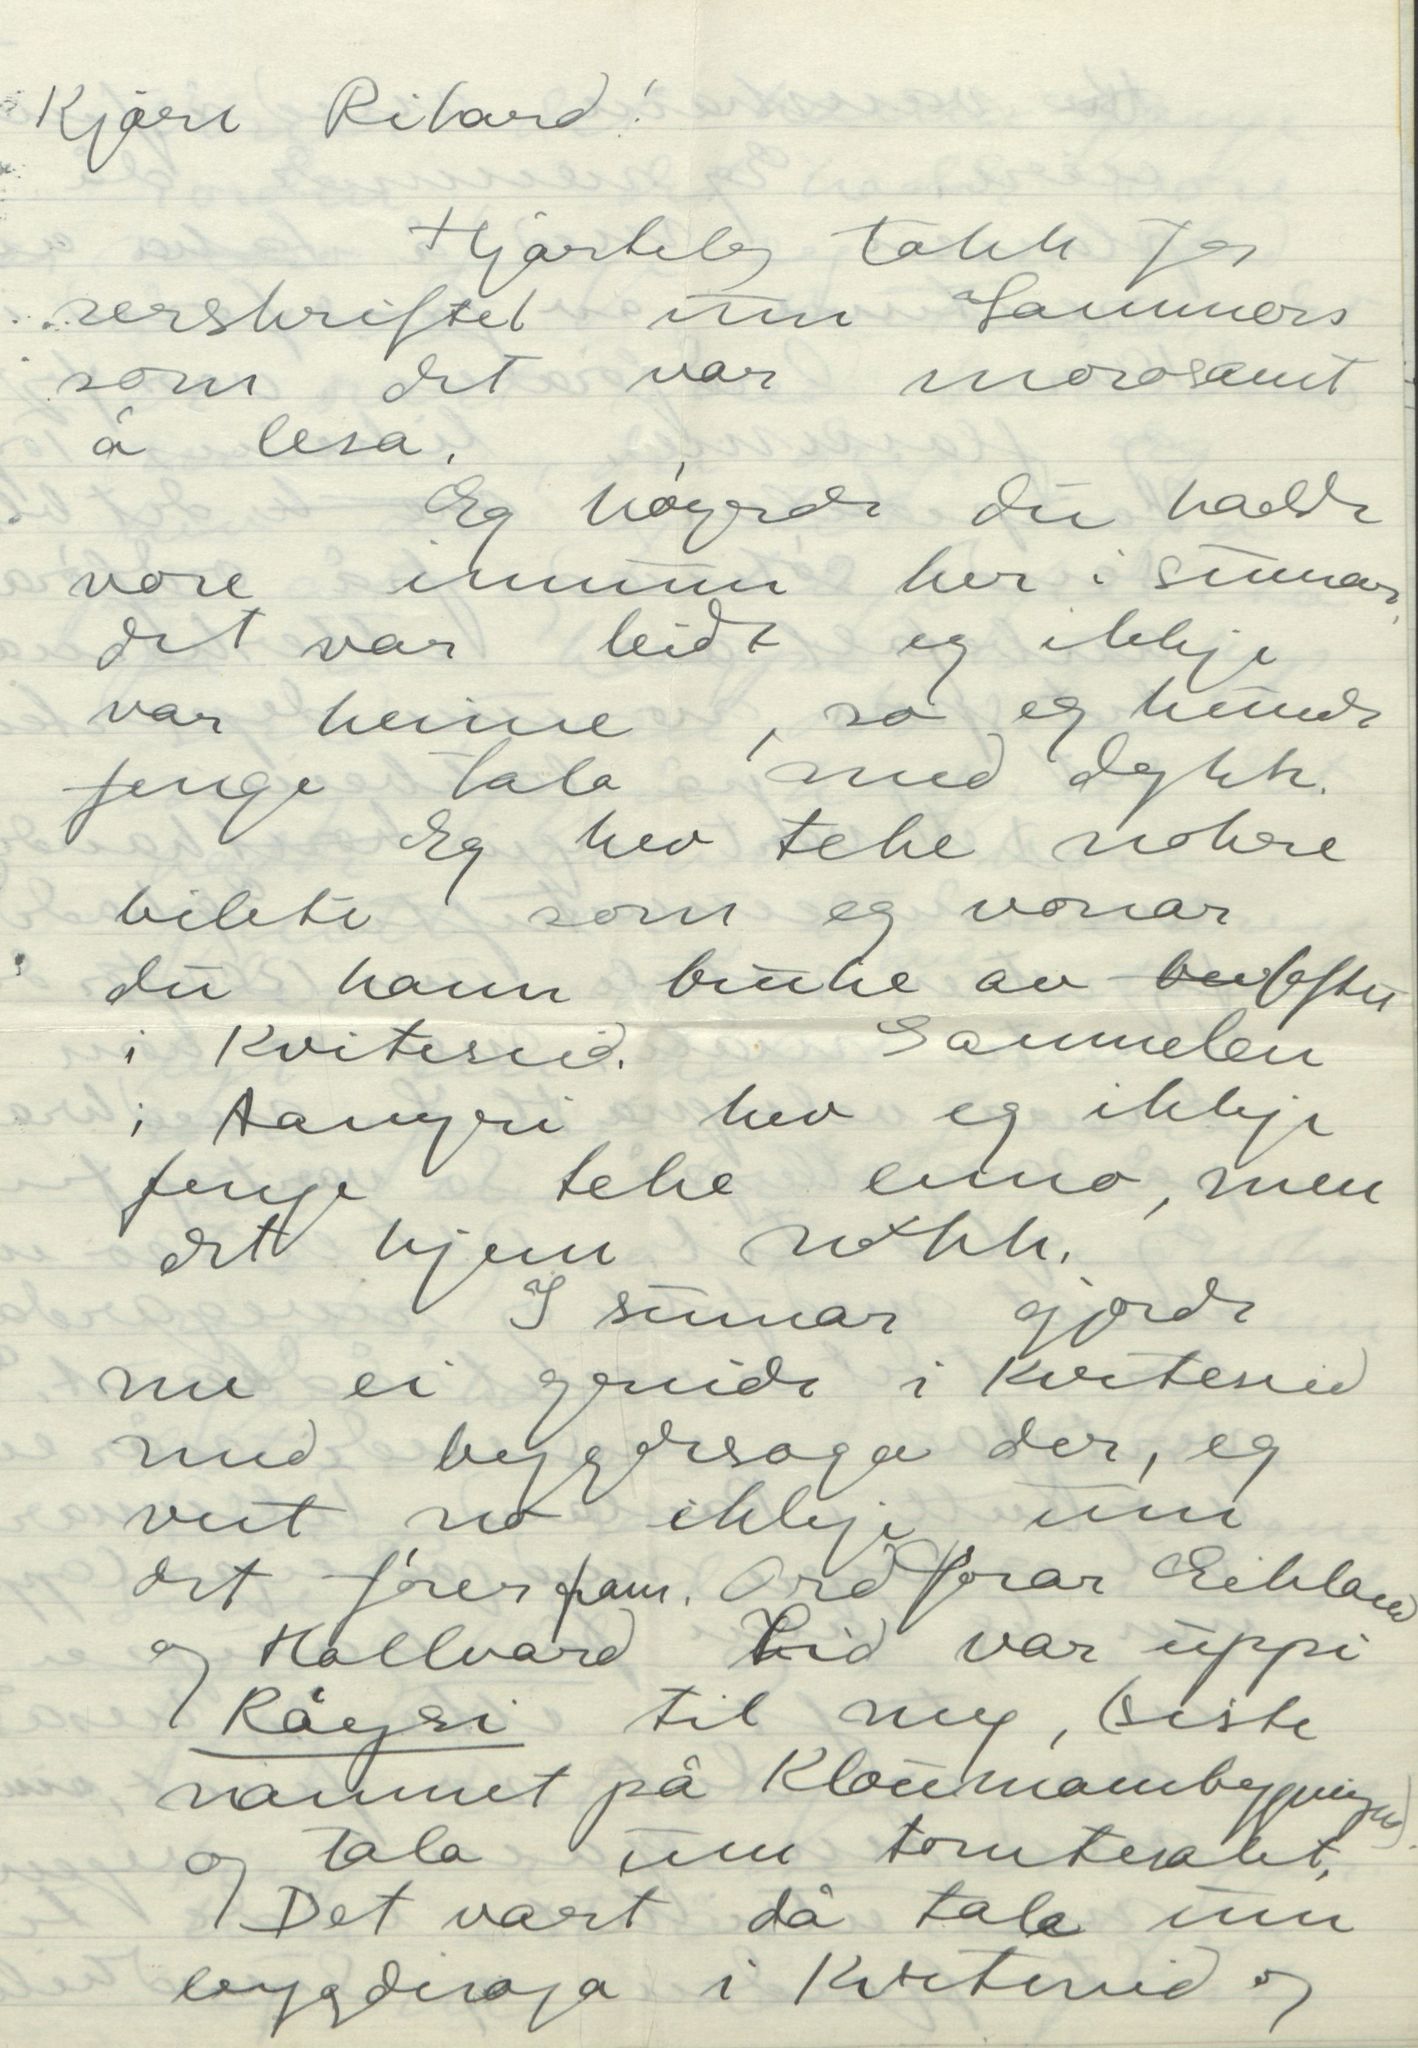 Kjære Rikard!
Hjarteleg takk for
særskriftet um Lammers
som det var morosamt
å lesa.
Eg høyrde du hadde
vore innum her i sumar,
det var leidt eg ikkje
var heime, so eg kunde
fenge tala med dykk.
Eg hev teke nokre
bilete som eg vonar
du kann bruke av loftet
i Kviteseid. Sammelen
i Aamyri hev eg ikkje
fenge teke enno, men
det kjem nokk.
I sumar gjorde
me ei greide i Kviteseid
med bygdesoga der, eg
veit no ikkje um
det fører fram. Ordførar Eikland
og Hallvard Lid var uppi
Råysi til meg, (siste
namnet på Kloumannbygningen)
og tala um tomtesalet.
Det vart då tala um
bygdesoga i Kviteseid og